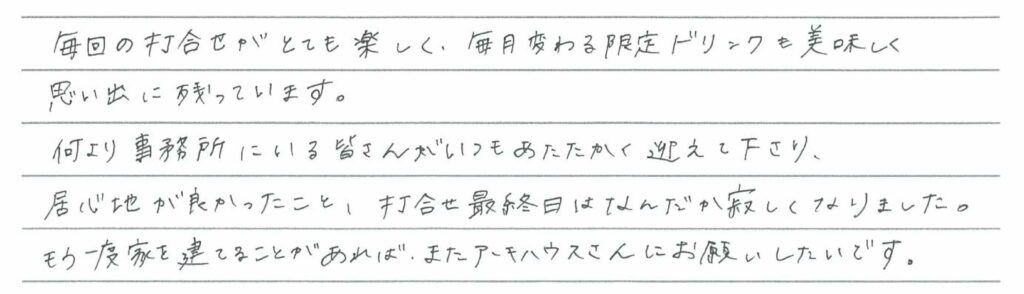 毎回の打合せがとても楽しく、毎月変わる限定ドリンクも美味しく
思い出に残っています。
何より事務所にいる皆さんがいつもあたたかく迎えて下さり、
居心地が良かったこと、打合せ最終日はなんだか寂しくなりました。
もう一度家を建てることがあれば、またアーキハウスさんにお願いしたいです。